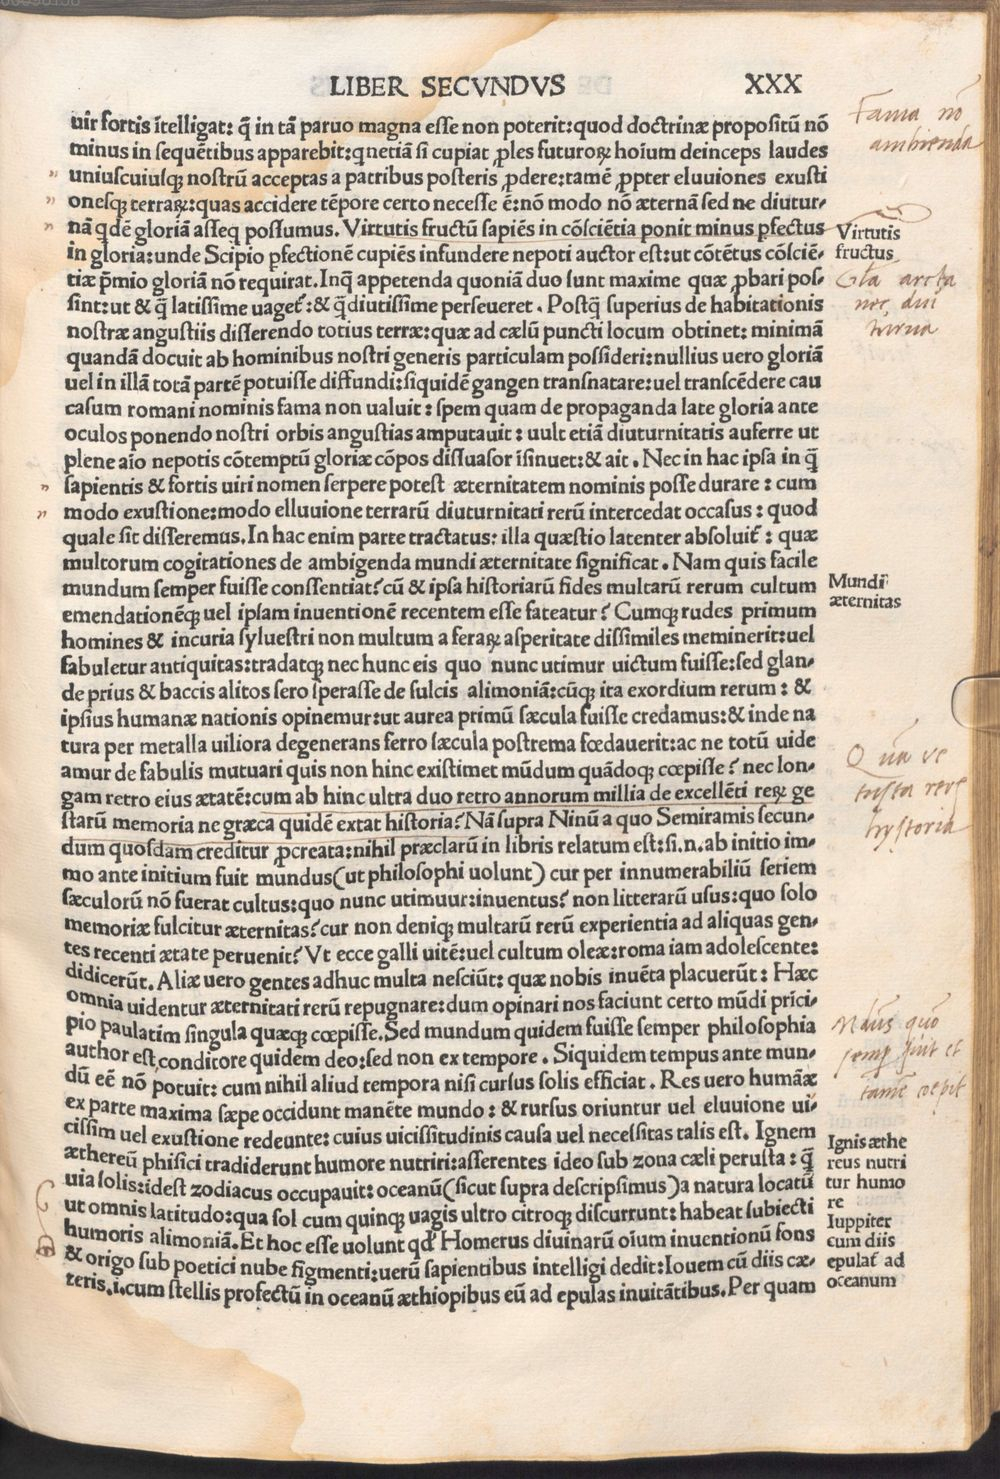 LIBER SECVNDVS XXX
uir fortis ītelligat: q̄ in tā paruo magna esse non poterit: quod doctrinæ propositū nō
minus in sequētibus apparebit: qnetiā si cupiat ꝓles futuroꝝ hoīum deinceps laudes
uniuscuiusqꝫ nostrū acceptas a patribus posteris ꝓdere: tamē ꝓpter eluuiones exusti
onesqꝫ terraꝝ: quas accidere tēpore certo necesse ē: nō modo nō æternā sed ne diutur-
nā qdē gloriā asseq possumus. Virtutis fructū sapiēs in cōsciētia ponit minus pfectus
in gloria: unde Scipio pfectionē cupiēs infundere nepoti auctor est: ut cōtētus cōsciē-
tiæ p̄mio gloriā nō requirat. Inq̄ appetenda quoniā duo sunt maxime quæ ꝓbari pos-
sint: ut & q̄ latissime uaget̄: & q̄diutissime perseueret. Postq̄ superius de habitationis
nostræ angustiis disserendo totius terræ: quæ ad cælū puncti locum obtinet: minimā
quandā docuit ab hominibus nostri generis particulam possideri: nullius uero gloriā
uel in illā totā partē potuisse diffundi: siquidē gangen transnatare: uel transcēdere cau
casum romani nominis fama non ualuit: spem quam de propaganda late gloria ante
oculos ponendo nostri orbis angustias amputauit: uult etiā diuturnitatis auferre ut
plene aīo nepotis cōtemptū gloriæ cōpos dissuasor īsinuet: & ait. Nec in hac ipsa in q̄
sapientis & fortis uiri nomen serpere potest æternitatem nominis posse durare: cum
modo exustione: modo elluuione terrarū diuturnitati rerū intercedat occasus: quod
quale sit disseremus. In hac enim parte tractatus: illa quæstio latenter absoluit̄: quæ
multorum cogitationes de ambigenda mundi æternitate significat. Nam quis facile
mundum semper fuisse conssentiat? cū & ipsa historiarū fides multarū rerum cultum
emendationēqꝫ uel ipsam inuentionē recentem esse fateatur? Cumqꝫ rudes primum
homines & incuria syluestri non multum a feraꝝ asperitate dissimiles meminerit: uel
fabuletur antiquitas: tradatqꝫ nec hunc eis quo nunc utimur uictum fuisse: sed glan-
de prius & baccis alitos sero sperasse de sulcis alimoniā: cūqꝫ ita exordium rerum: &
ipsius humanæ nationis opinemur: ut aurea primū sæcula fuisse credamus: & inde na
tura per metalla uiliora degenerans ferro sæcula postrema fœdauerit: ac ne totū uide
amur de fabulis mutuari quis non hinc existimet mūdum quādoqꝫ cœpisse? nec lon-
gam retro eius ætatē: cum ab hinc ultra duo retro annorum millia de excellēti reꝝ ge
starū memoria ne græca quidē extat historia? Nā supra Ninū a quo Semiramis secun-
dum quosdam creditur ꝓcreata: nihil præclarū in libris relatum est: si. n. ab initio im-
mo ante initium fuit mundus (ut philosophi uolunt) cur per innumerabiliū seriem
sæculorū nō fuerat cultus: quo nunc utimuur: inuentus? non litterarū usus: quo solo
memoriæ fulcitur æternitas? cur non deniqꝫ multarū rerū experientia ad aliquas gen-
tes recenti ætate peruenit? Vt ecce galli uitē: uel cultum oleæ: roma iam adolescente:
didicerūt. Aliæ uero gentes adhuc multa nesciūt: quæ nobis inuēta placuerūt: Hæc
omnia uidentur æternitati rerū repugnare: dum opinari nos faciunt certo mūdi prīci-
pio paulatim singula quæqꝫ cœpisse. Sed mundum quidem fuisse semper philosophia
author est, conditore quidem deo: sed non ex tempore. Siquidem tempus ante mun-
dū eē nō potuit: cum nihil aliud tempora nisi cursus solis efficiat. Res uero humāæ
ex parte maxima sæpe occidunt manēte mundo: & rursus oriuntur uel eluuione ui-
cissim uel exustione redeunte: cuius uicissitudinis causa uel necessitas talis est. Ignem
æthereū phisici tradiderunt humore nutriri: asserentes ideo sub zona cæli perusta: q̄
uia solis: idest zodiacus occupauit: oceanū (sicut supra descripsimus) a natura locatū
ut omnis latitudo: qua sol cum quinqꝫ uagis ultro citroqꝫ discurrunt: habeat subiecti
humoris alimoniā. Et hoc esse uolunt qd̄ Homerus diuinarū oīum inuentionū fons
& origo sub poetici nube figmenti: uerū sapientibus intelligi dedit: Iouem cū diis cæ-
teris. i. cum stellis profectū in oceanū æthiopibus eū ad epulas inuitātibus. Per quam
Fama nō
ambienda
Virtutis
fructus
Gl̄a arcta
nec diu
turna
Mundi
æternitas
Quā ve
tusta rerꝫ
hystoria
Mūdus quō
semꝑ fuit et
tamē cœpit
Ignis æthe
reus nutri
tur humo
re
Iuppiter
cum diis
epulat̄ ad
oceanum